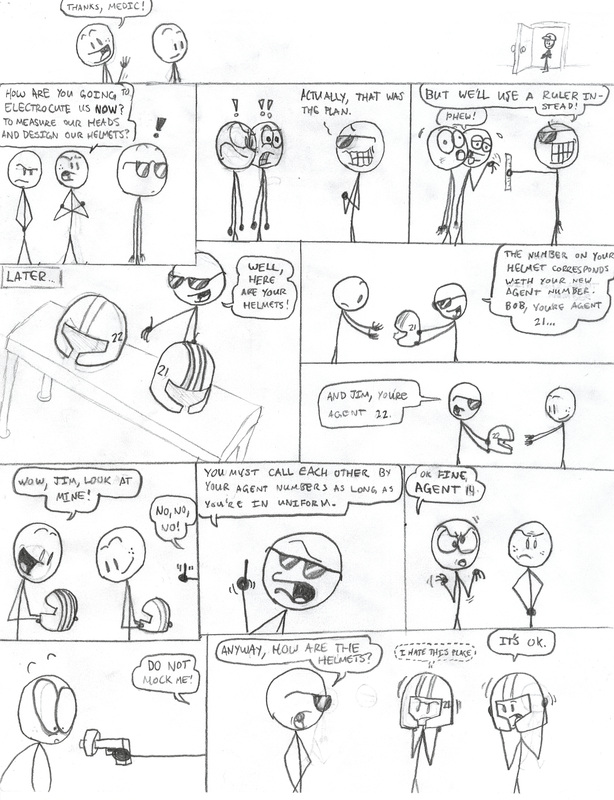 THANKS, MEDIC!
HOW ARE YOU GOING TO
ELECTROCUTE US NOW?
TO MEASURE OUR HEADS
AND DESIGN OUR HELMETS?
!
! !!
ACTUALLY, THAT WAS
THE PLAN.
BUT WE'LL USE A RULER IN-
STEAD!
PHEW!
LATER...
22
21
WELL,
HERE
ARE YOUR
HELMETS!
THE NUMBER ON YOUR
HELMET CORRESPONDS
WITH YOUR NEW
AGENT NUMBER.
BOB, YOU'RE AGENT
21...
21
AND JIM, YOU'RE
AGENT 22.
22
WOW, JIM, LOOK AT
MINE!
NO, NO,
NO!
YOU MUST CALL EACH OTHER BY
YOUR AGENT NUMBERS AS LONG AS
YOU'RE IN UNIFORM.
OK FINE,
AGENT 14.
DO NOT
MOCK ME!
ANYWAY, HOW ARE THE
HELMETS?
I HATE THIS PLACE
21
IT'S OK.